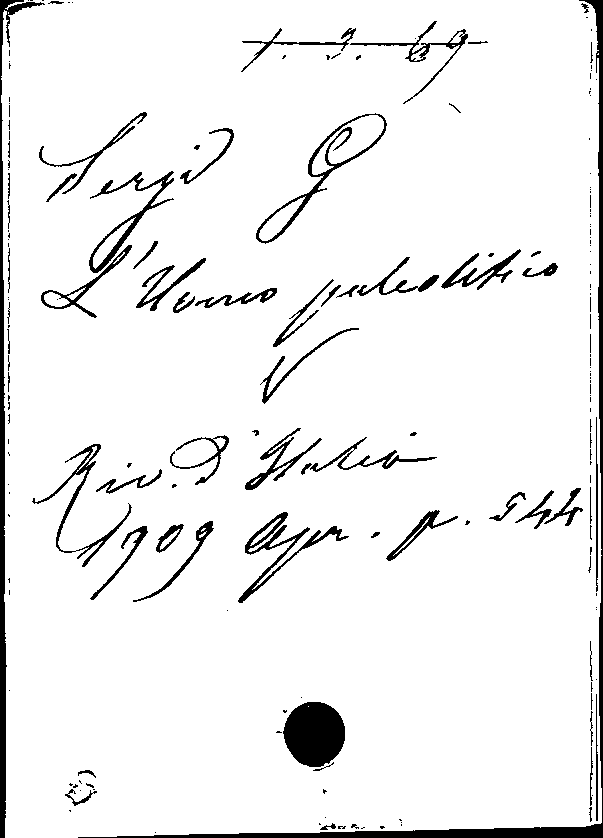 1. 3. 69
Sergi G
L'Uomo paleolitico
Riv. d'Italia
1909 Apr. p. 544